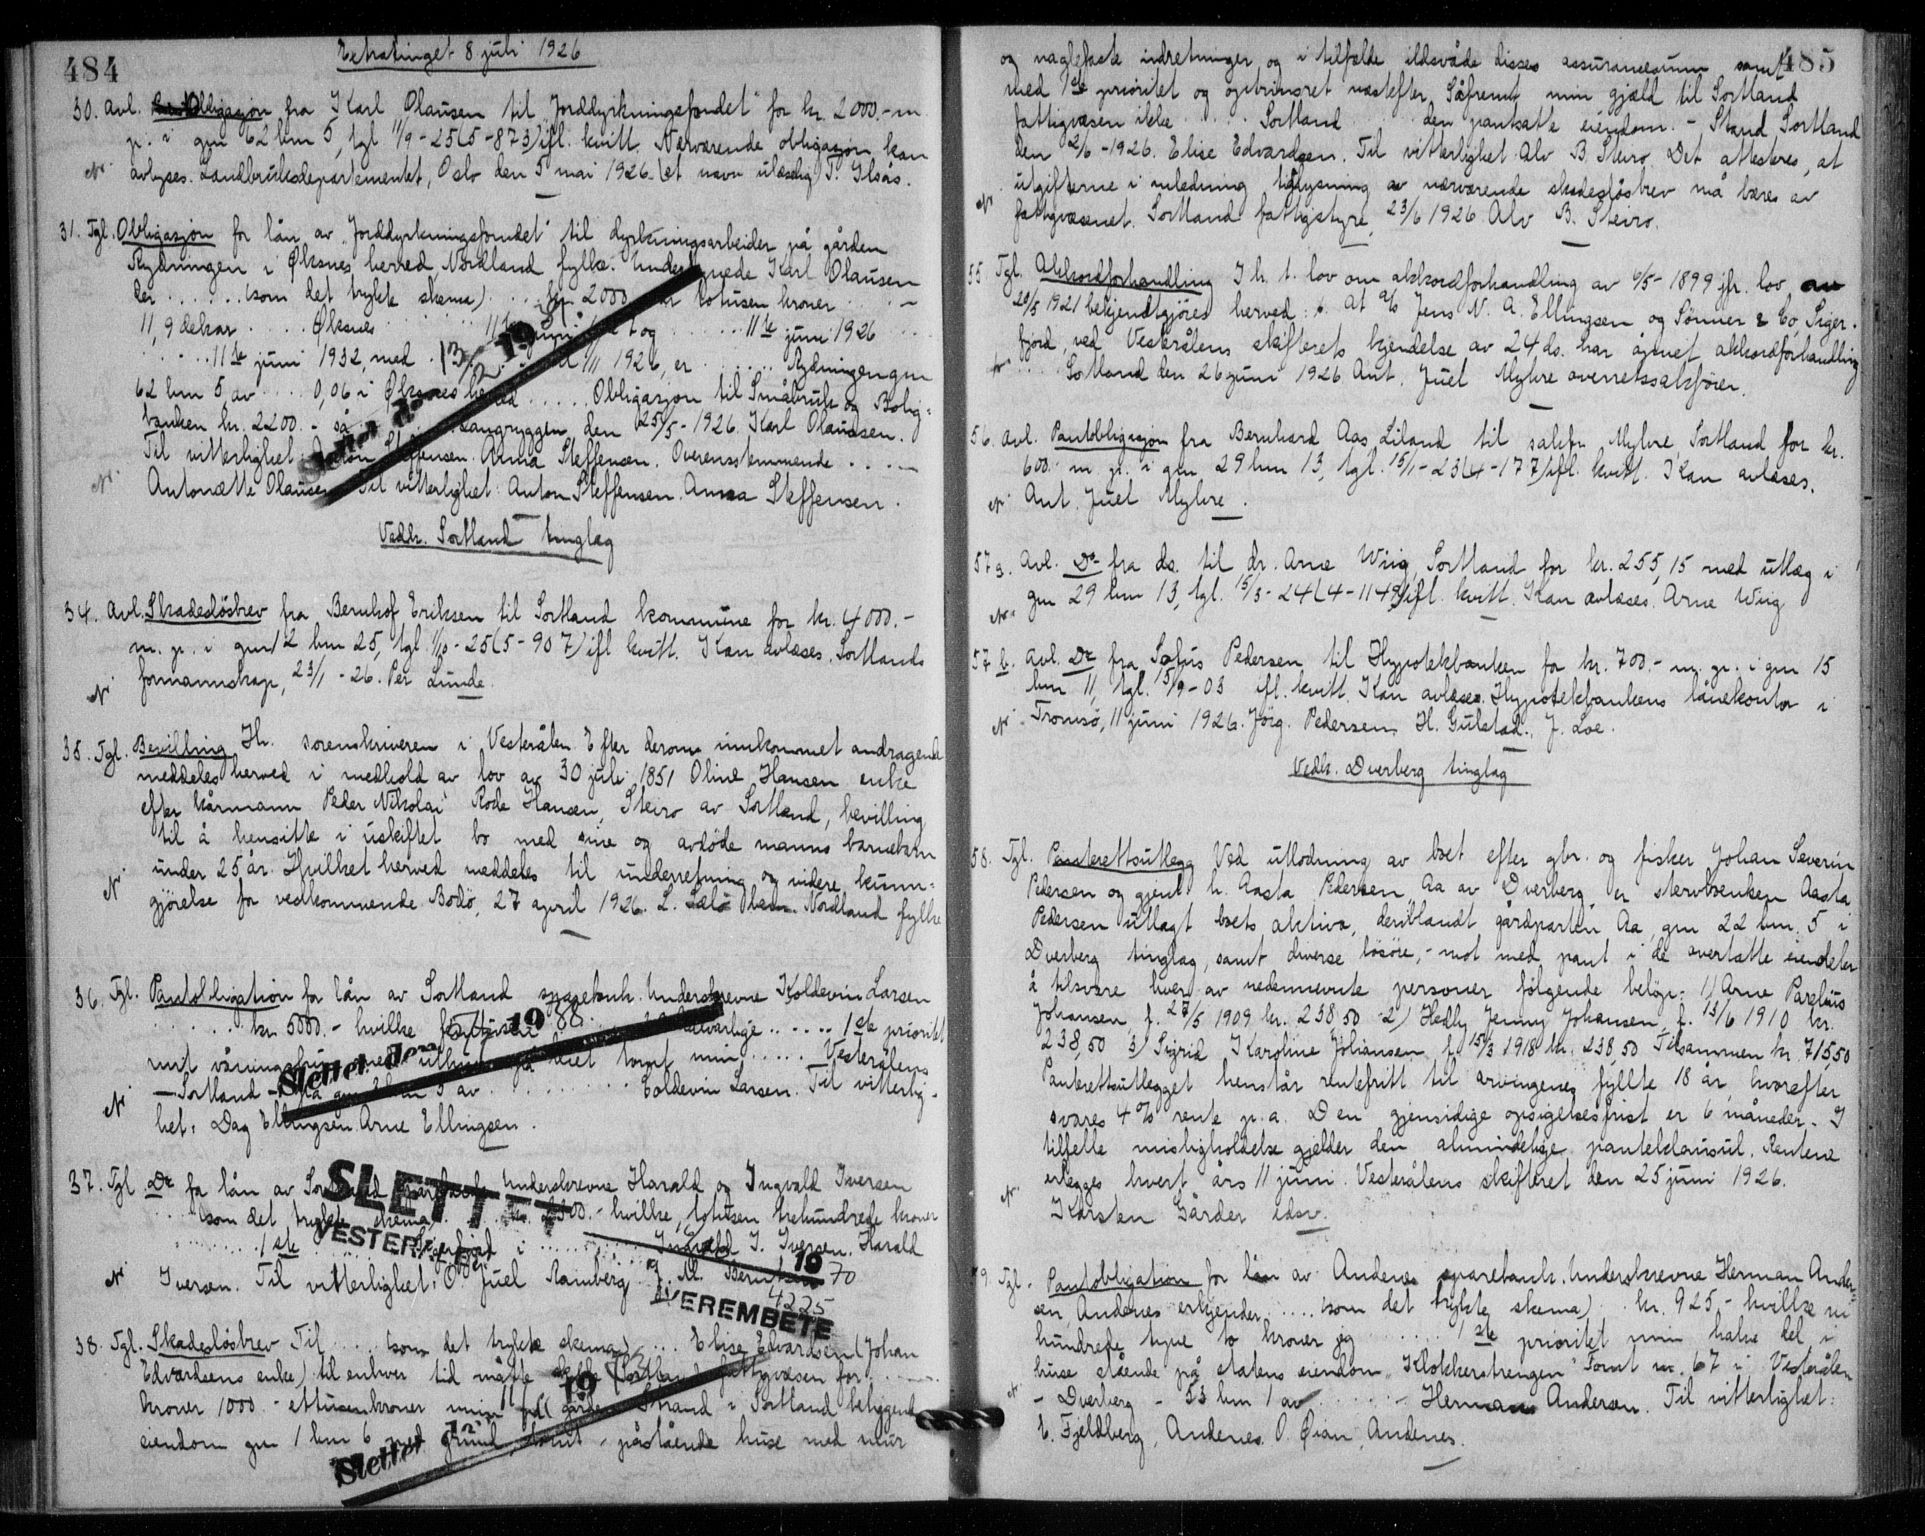 484
Extratinget 8 juli 1926
30. Avl. Obligasjon fra Karl Olausen til "Jorddyrkningsfondet" for kr. 2000.- m.
p. i gnr 62 bnr 5, tgl 11/9-25 (5-873) ifl. kvitt. Nærværende obligasjon kan
avlyses. Landbruksdepartementet, Oslo den 5 mai 1926. (et navn ulæselig) T. Ilsås.
N
31. Tgl. Obligasjon for lån av "Jorddyrkningsfondet" til dyrkningsarbeider på gården
Rydningen i Øksnes herred Nordland fylke. Undertegnede Karl Olausen
der ...... (som det trykte skema) .... kr. 2000 totusen kroner ... -
11,9 dekar ..... Øksnes ...... 11te juni og ...... 11te juni 1926 ..
..... 11te juni 1932, med ... 1926, er ...... Rydningen gnr
62 bnr 5, av .... 0,06 i Øksnes herred ..... Obligasjon til Småbruk og Bolig=
banken kr. 2200.- så Langryggen den 25/5-1926. Karl Olausen.
Til vitterlighet: Anton Steffensen. Anna Steffensen. Overensstemmende .....
N Antonette Olausen Til vitterlighet: Anton Steffensen. Anna Steffensen.
Slettet den 19
Vedk. Sortland tinglag
34. Avl. Skadesløsbrev fra Bernhof Eriksen til Sortland kommune for kr. 4000.-
m. p. i gnr 12 bnr 25, tgl 1/10-25 (5-907) ifl kvitt. Kan avlæses. Sortlands
N formannskap, 23/1-26. Per Lunde.
35. Tgl. Bevilling Hr. sorenskriveren i Vesterålen. Efter derom innkommet andragende
meddeles herved i medhold av lov av 30 juli 1851 Oline Hansen enke
efter kårmann Peder Nikolai Rode Hansen, Steiro av Sortland, bevilling
til å hensitte i uskiftet bo med sine og avdøde manns barnebarn
under 25 år. Hvilket herved meddeles til underretning og videre kunn=
N gjørelse for vedkommende. Bodø, 27 april 1926. Nordland fylke
36. Tgl. Pantobligation for lån av Sortland sparebank. Underskrevne Koldevin Larsen
...... kr. 5000.- hvilke femtusen ...... 1ste prioritet
mit våningshus med uthus tomt min ..... Vesterålens
- Sortland - bnr 3 av ......... Coldevin Larsen. Til vitterlig-
N het: Dag Ellingsen. Arne Ellingsen.
Slettet den 19
37. Tgl Do for lån av Sortland sparebank Underskrevne Harald og Ingvald Iversen
(som det trykte skema) kr. 2300.- hvilke totusen trehundrede kroner
...... 1ste ...... Sigerfjord i ......... Ingvald I. Iversen. Harald
N Iversen. Til vitterlighet: O. Juel Ramberg J. M. Berntsen
SLETTET
VESTERÅLEN
19 70
4225
SVEREMBETE
38. Tgl. Skadesløsbrev Til ..... (som det trykte skema) .... Elise Edvardsen (Johan
Edvardsens enke) til enhver tid måtte skylde Sortland fattigvæsen for ....
kroner 1000.- ettusenkroner min gården Strand i Sortland beliggende
eiendom gnr 1 bnr 6 med grund, tomt, påstående huse med mur
Slettet den 19
485
og naglefaste indretninger og i tilfælde ildsvåde disses assurancesum samt
med 1ste prioritet og opstrinsret næstefter. Såfremt min gjæld til Sortland
fattigvæsen ikke .... Sortland .... den pantsatte eiendom. - Stand, Sortland
den 2/6-1926. Elise Edvardsen. Til vitterlighet Alv B. Steiro. Det attesteres, at
utgifterne i anledning tinglysning av nærværende skadesløsbrev må bæres av
N fattigvæsenet. Sortland fattigstyre, 23/6 1926 Alv B. Steiro.
55. Tgl. Akkordforhandling I h. t. lov om akkordforhandling av 6/5-1899 jfr. lov av
20/5 1921 bekjendtgjøres herved: At a/s Jens N. A. Ellingsen og Sønner & Co, Siger-
fjord, ved Vesterålens skifterets kjendelse av 24. ds. har åpnet akkordforhandling
N .... Sortland den 26 juni 1926 Ant. Juel Myhre overretssakfører.
56. Avl. Pantobligasjon fra Bernhard Aas, Liland til sakfr. Myhre, Sortland for kr.
600.- m. p. i gnr 29 bnr 13, tgl. 15/1-23 (4-177) ifl. kvitt. Kan avlæses.
N Ant. Juel Myhre.
57 a. Avl. Do fra ds. til dr. Arne Wiig, Sortland for kr. 255,15 med utlæg i
gnr 29 bnr 13, tgl. 15/3-24 (4-1149) ifl. kvitt. Kan avlæses. Arne Wiig
N
57 b. Avl. Do fra Sofus Pedersen til Hypotekbanken for kr. 700.- m. p. i gnr 15
bnr 11, tgl. 15/9-03 ifl. kvitt. Kan avlæses. Hypotekbankens lånekontor i
N Tromsø, 11 juni 1926. Jørg. Pedersen H. Gulstad. J. Loe.
Vedk. Dverberg tinglag
58. Tgl. Panterettsutlegg Ved utlodning av boet efter gbr. og fisker Johan Severin
Pedersen og gjenl. h. Aasta Pedersen, Aa av Dverberg, er stervboenken Aasta
Pedersen utlagt boets aktiva, deriblandt gårdparten Aa, gnr 22 bnr. 5 i
Dverberg tinglag, samt diverse løsøre, - mot med pant i de overtatte eiendeler
å tilsvare hver av nedennevnte personer følgende beløp: 1) Arne Parelius
Johansen, f. 27/5 1909 kr. 238,50 2) Hedly Jenny Johansen, f. 13/6 1910 kr.
238,50 3) Sigrid Karoline Johansen, f. 15/3 1918 kr. 238,50 Tilsammen kr. 715,50
Panterettsutlegget henstår rentefritt til arvingenes fyllte 18 år, hvorefter
svares 4% rente p.a. Den gjensidige opsigelsesfrist er 6 måneder. - I
tilfelle misligholdelse gjelder den almindelige panteklausul. Rentene
erlegges hvert års 11 juni. Vesterålens skifteret den 25 juni 1926.
N Karsten Gårder edsv.
59. Tgl. Pantobligation for lån av Andenes sparebank. Underskrevne Herman Ander-
sen, Andenes erkjender .... (som det trykte skema) kr. 925,- hvilke ni
hundrede tyve to kroner jeg ...... 1ste prioritet min halve del i
huse stående på statens eiendom "Klokkerstrengen" Tomt nr. 67 i Vesterålen
N - Dverberg - 53 bnr 1 av ...... - Herman Andersen. Til vitterlighet:
E. Fjeldberg, Andenes. O. Øian, Andenes.